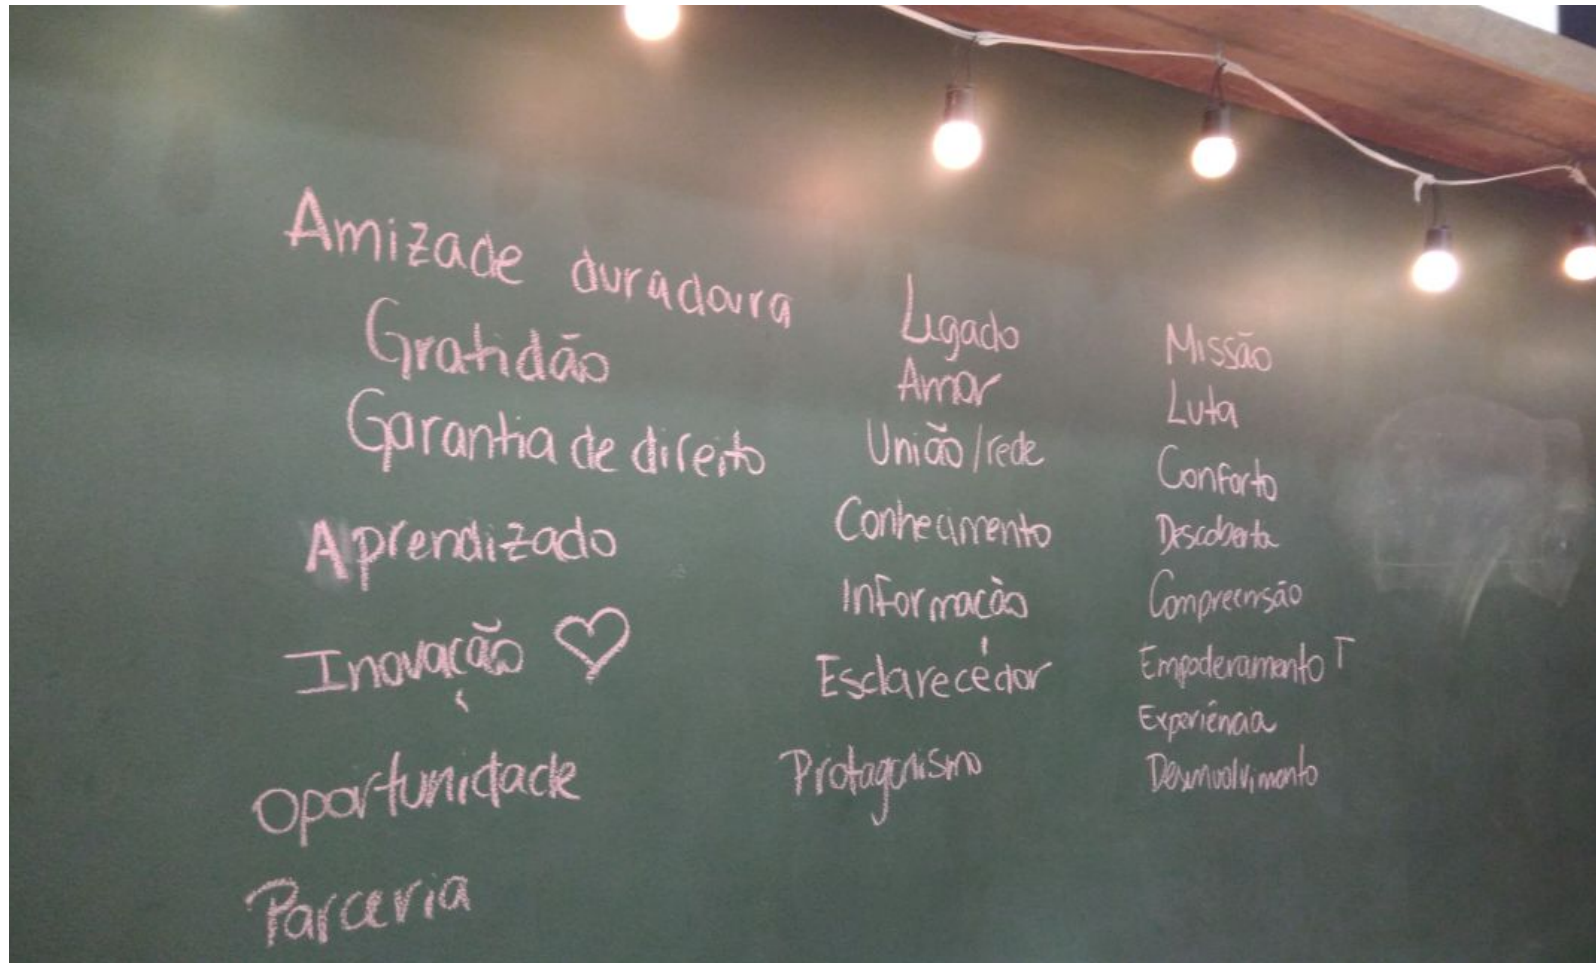 Amizade duradoura
Gratidão
Garantia de direito
Aprendizado
Inovação
Oportunidade
Parceria
Ligado
Amor
União/rede
Conhecimento
Informação
Esclarecedor
Protagonismo
Missão
Luta
Conforto
Descoberta
Compreensão
Empoderamento T
Experiência
Desenvolvimento